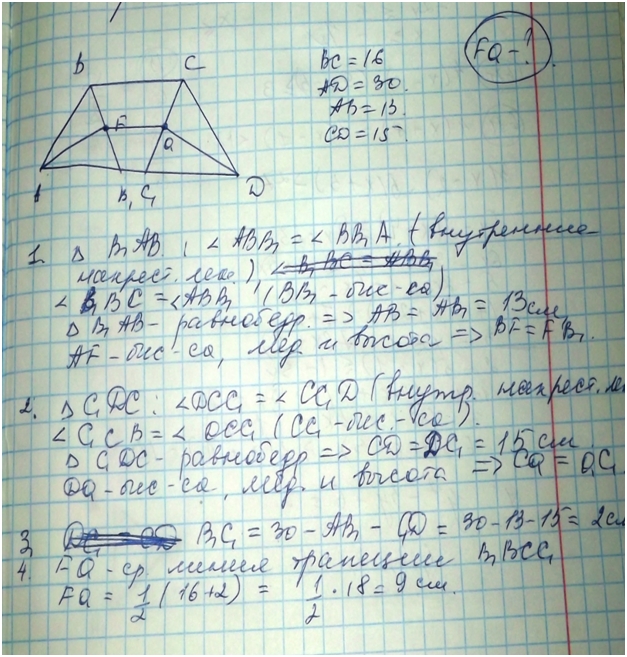 FQ - ?
B C
BC = 16
AD = 30.
AB = 13
CD = 15.
F Q
A B₁ C₁ D
1. △ B₁AB : ∠ABB₁ = ∠BB₁A, (внутренние
накрест. леж.)
∠B₁BC = ∠ABB₁ (BB₁ - бис-са)
△ B₁AB - равнобедр. => AB = AB₁ = 13 см,
AF - бис-са, мед. и высота => BF = FB₁.
2. △ C₁DC : ∠DCC₁ = ∠CC₁D (внутр. накрест. ле
∠C₁CB = ∠DCC₁ (CC₁ - бис.-са).
△ C₁DC - равнобедр => CD = DC₁ = 15 см.
DQ - бис-са, мед. и высота => CQ = QC₁
3. B₁C₁ = 30 - AB₁ - C₁D = 30 - 13 - 15 = 2см
4. FQ - ср. линия трапеции B₁BCC₁
FQ = 1/2 (16+2) = 1/2 · 18 = 9 см.